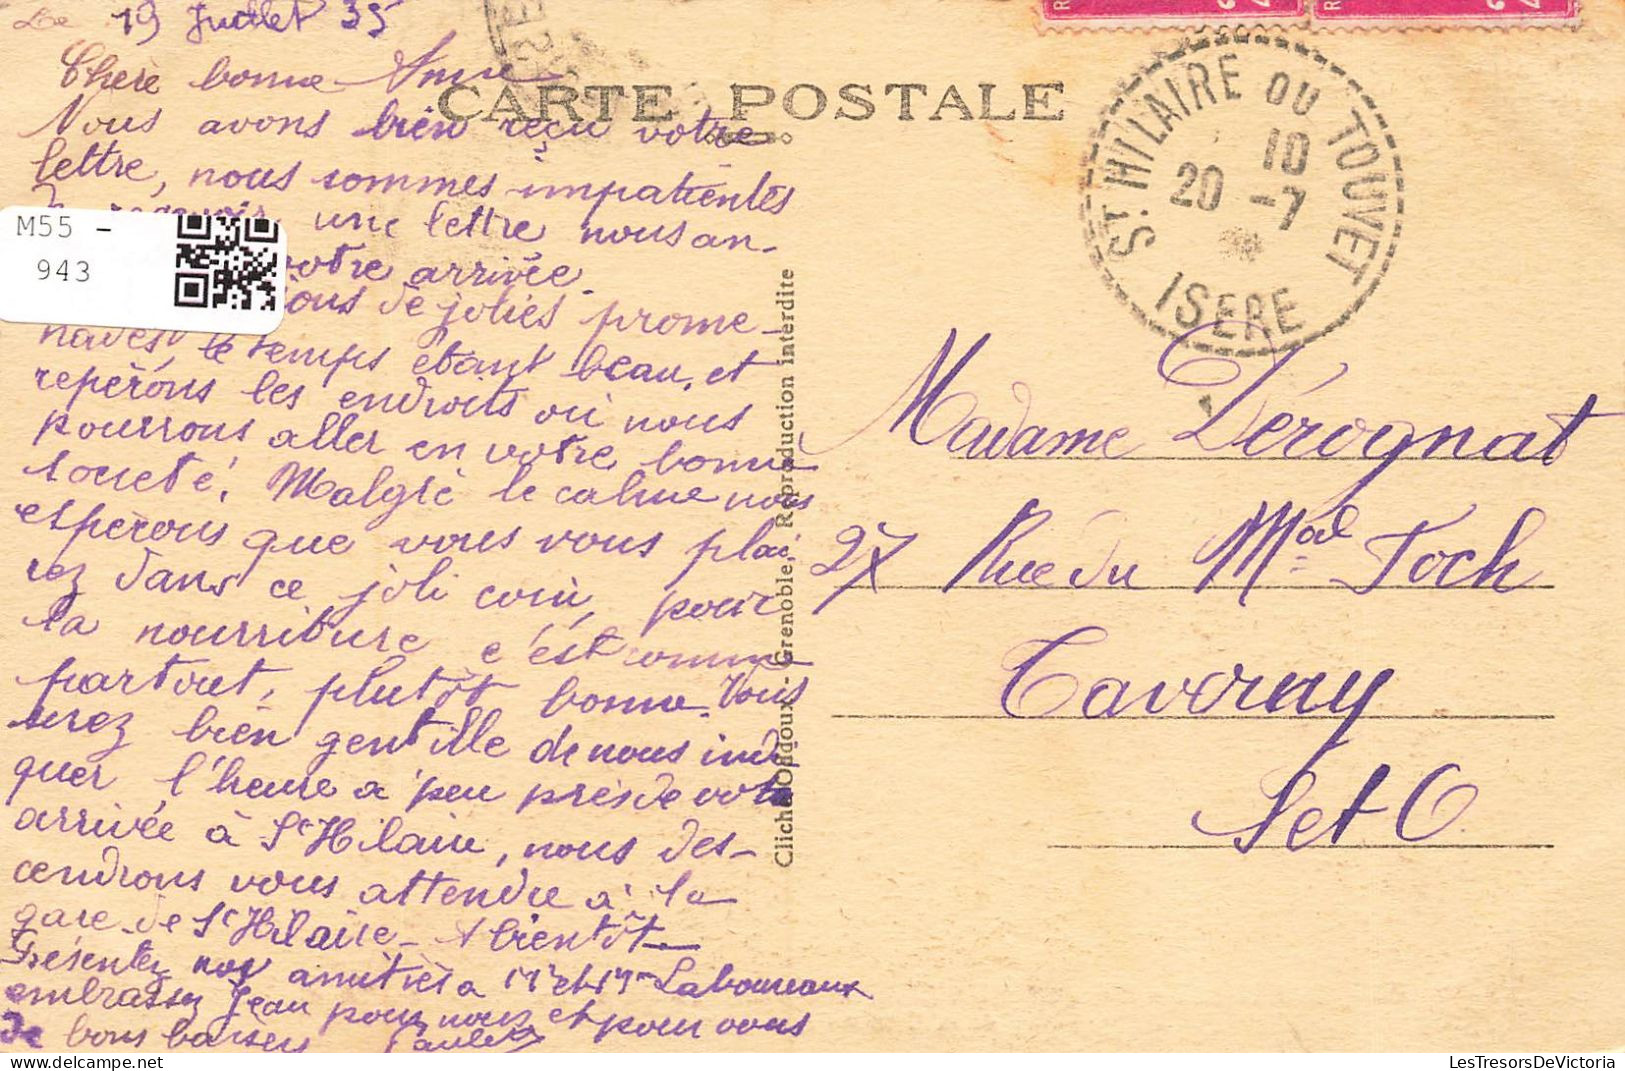 Le 19 Juillet 35
Chère bonne Amie
CARTE POSTALE
Nous avons bien reçu votre
lettre, nous sommes impatientes
de recevoir une lettre nous an-
votre arrivée.
de jolies prome-
nades, le temps étant beau, et
repérons les endroits où nous
pourrons aller en votre bonne
société. Malgré le calme nous
espérons que vous vous plai-
rez dans ce joli coin, pour
la nourriture c'est comme
partout, plutôt bonne. Vous
serez bien gentille de nous indi
quer l'heure à peu près de votre
arrivée à St Hilaire, nous des-
cendrons vous attendre à la
gare de St Hilaire - A bientôt.
Présentez nos amitiés à Mr et Mme Laboureaux
embrassez Jean pour nous et pour vous
de bons baisers Paulette
M55 -
943
Cliché Oddoux - Grenoble, Reproduction interdite
ST HILAIRE DU TOUVET
10
20 -7
ISERE
Madame Dérognat
27 Rue du Mal Foch
Taverny
S et O
LesTresorsDeVictoria